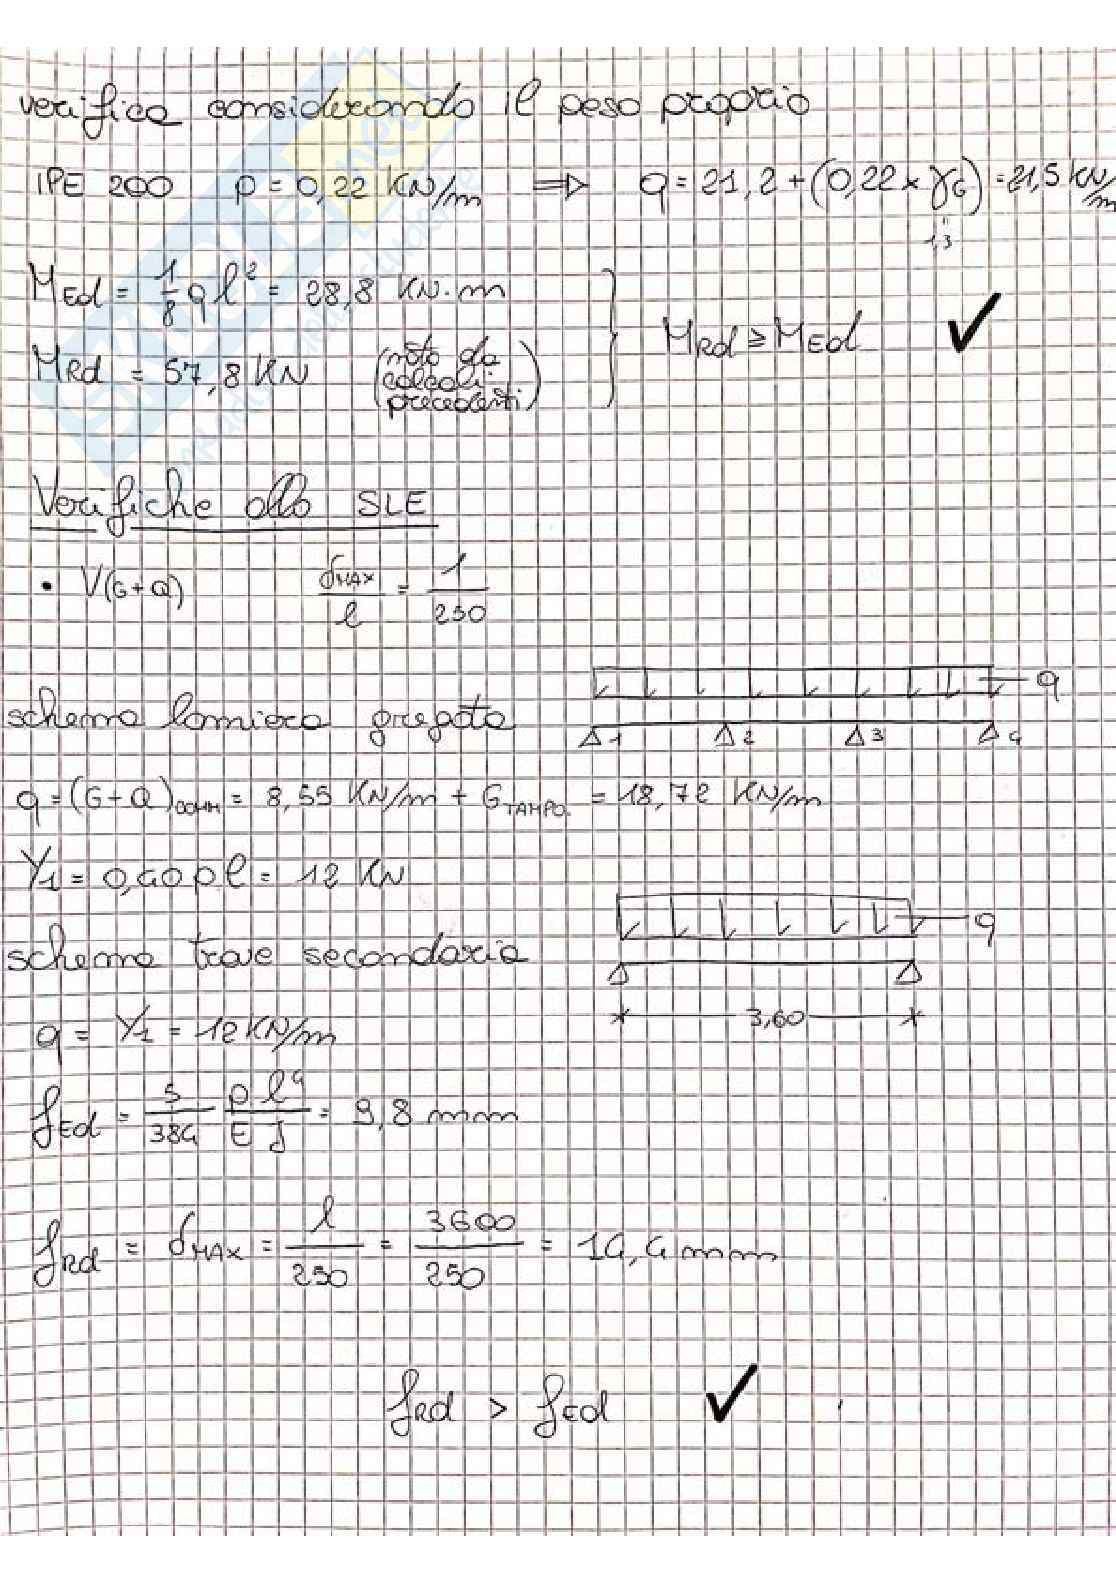 verifica considerando il peso proprio
IPE 200 p = 0,22 KN/m ⇒ q = 21,2 + (0,22 x γG) = 21,5 KN/m
"
1,3
MEd = 1/8 q l² = 28,8 KN·m
MRd = 57,8 KN (noto da calcoli precedenti)
MRd ≥ MEd ✓
Verifiche allo SLE
• V(G+Q) δMAX/l = 1/250
q
schema lamiera gregata
Δ1 Δ2 Δ3 Δ4
q = (G+Q)COMM = 8,55 KN/m + GTAMPO. = 18,72 KN/m
Y1 = 0,40 p l = 12 KN
q
schema trave secondaria
3,60
q = Y1 = 12 KN/m
fEd = 5/384 p l⁴/E J = 9,8 mm
fRd = δMAX = l/250 = 3600/250 = 14,4 mm
fRd > fEd ✓